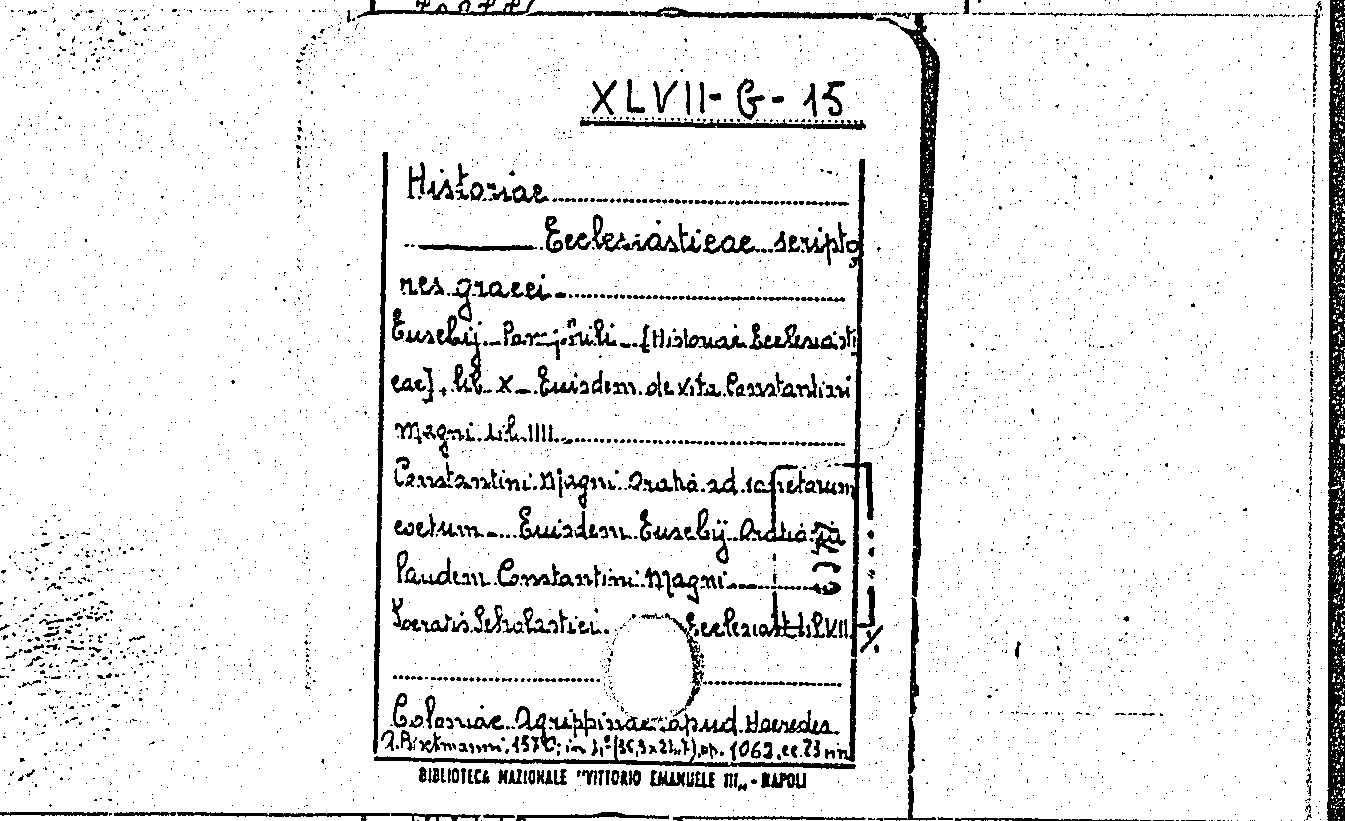 XLVII-G-15
Historiae
Ecclesiasticae scripto
res graeci
Eusebij Pamphili [Historiae Ecclesiasti
cae], lib. X Eiusdem de vita Constantini
Magni lib. IIII
Constantini Magni Oratio ad sanctorum
coetum Eiusdem Eusebij Oratio in
laudem Constantini Magni
Socratis Scholastici Ecclesiast lib. VII
Coloniae Agrippinae apud Haeredes
A. Birckmanni, in pp. 1062, cc. 23 nn
BIBLIOTECA NAZIONALE "VITTORIO EMANUELE III„ - NAPOLI